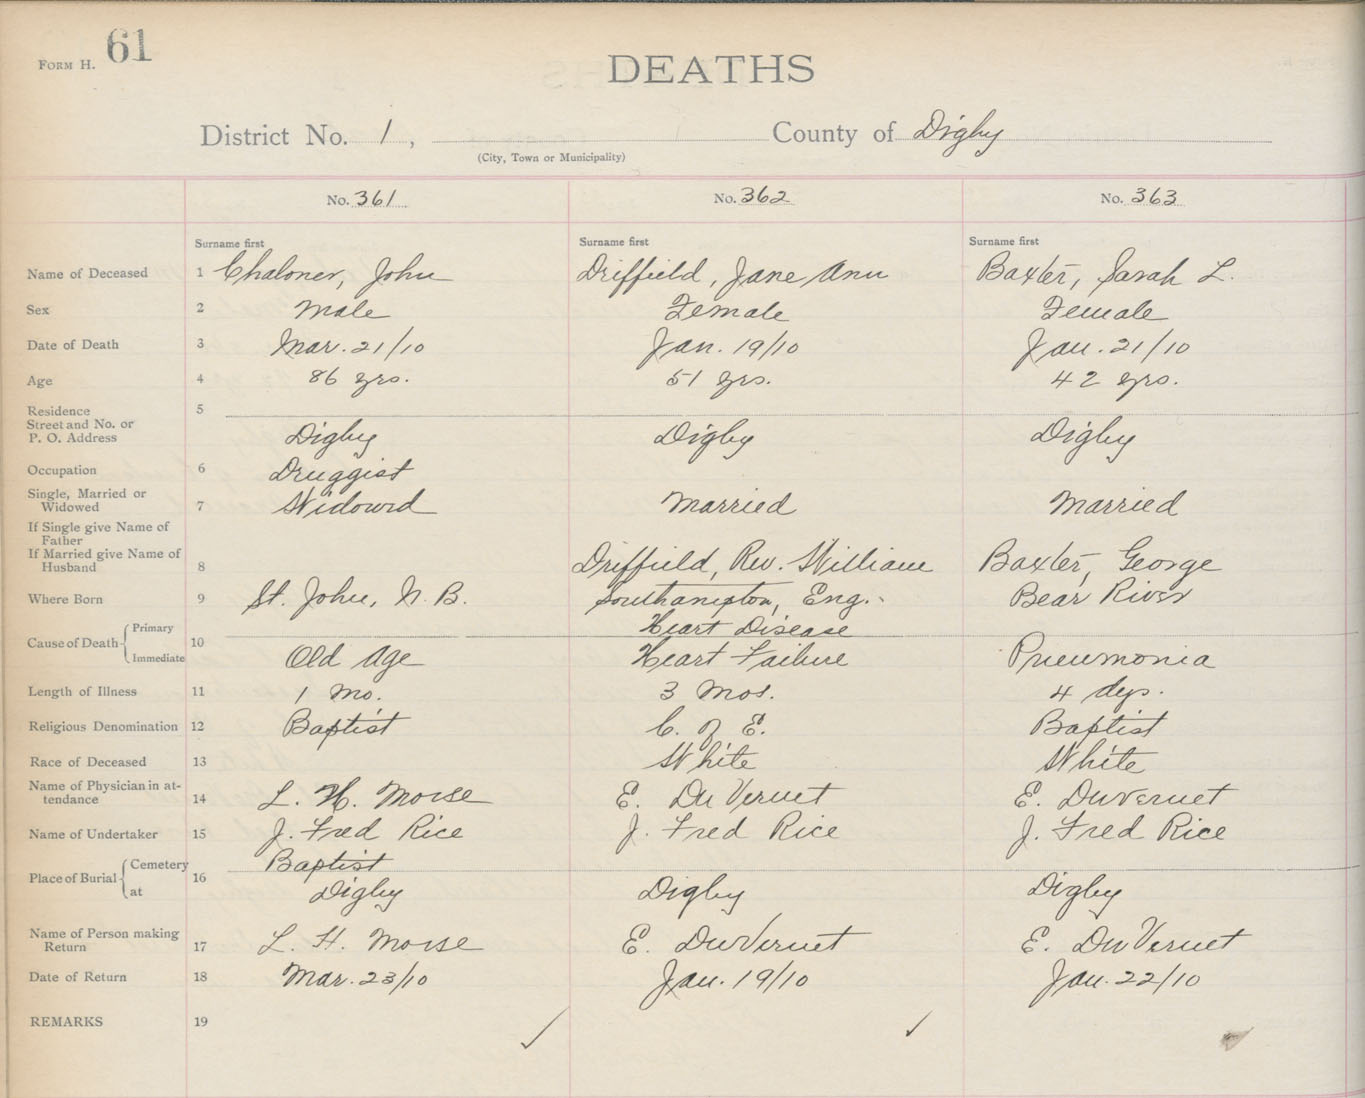 FORM H. 61
DEATHS
District No. 1, County of Digby
(City, Town or Municipality)
No. 361 No. 362 No. 363
Surname first Surname first Surname first
Name of Deceased 1 Chaloner, John Driffield, Jane Ann Baxter, Sarah L.
Sex 2 Male Female Female
Date of Death 3 Mar. 21/10 Jan. 19/10 Jan. 21/10
Age 4 86 yrs. 51 yrs. 42 yrs.
Residence 5
Street and No. or
P. O. Address Digby Digby Digby
Occupation 6 Druggist
Single, Married or
Widowed 7 Widowd Married Married
If Single give Name of
Father
If Married give Name of
Husband 8 Driffield, Rev. William Baxter, George
Where Born 9 St. John, N. B. Southampton, Eng. Bear River
Cause of Death Primary 10 Heart Disease
Immediate Old Age Heart Failure Pneumonia
Length of Illness 11 1 Mo. 3 Mos. 4 dys.
Religious Denomination 12 Baptist C. of E. Baptist
Race of Deceased 13 White White
Name of Physician in at-
tendance 14 L. H. Morse E. DuVernet E. DuVernet
Name of Undertaker 15 J. Fred Rice J. Fred Rice J. Fred Rice
Place of Burial Cemetery 16 Baptist
at Digby Digby Digby
Name of Person making
Return 17 L. H. Morse E. DuVernet E. DuVernet
Date of Return 18 Mar. 23/10 Jan. 19/10 Jan. 22/10
REMARKS 19